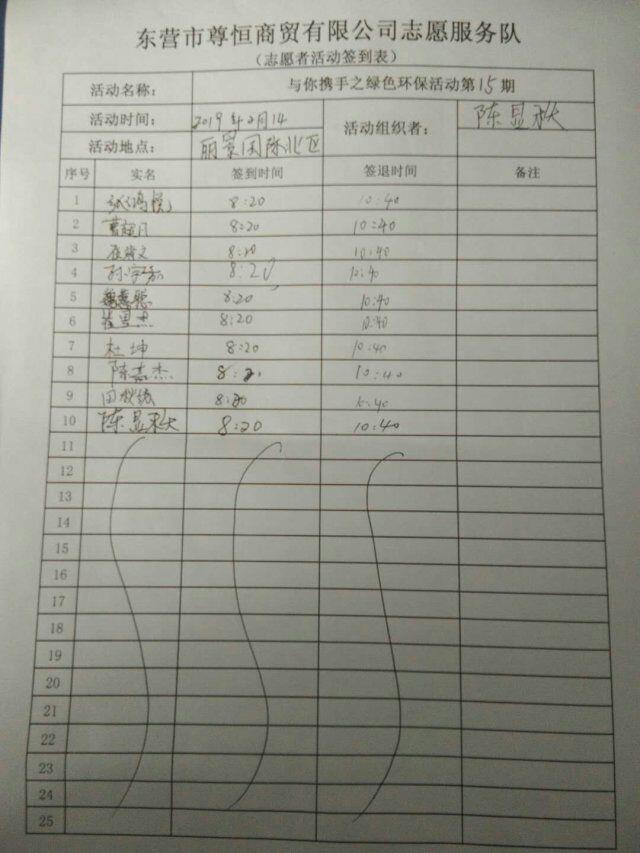 东营市尊恒商贸有限公司志愿服务队
（志愿者活动签到表）
活动名称： 与你携手之绿色环保活动第15期
活动时间： 2019年2月14 活动组织者： 陈显秋
活动地点： 丽景国际北区
序号 实名 签到时间 签退时间 备注
1 8:20 10:40
2 8:20 10:40
3 8:20 10:40
4 8:20 10:40
5 8:20 10:40
6 8:20 10:40
7 杜坤 8:20 10:40
8 陈嘉杰 8:20 10:40
9 8:20 10:40
10 陈显秋 8:20 10:40
11
12
13
14
15
16
17
18
19
20
21
22
23
24
25